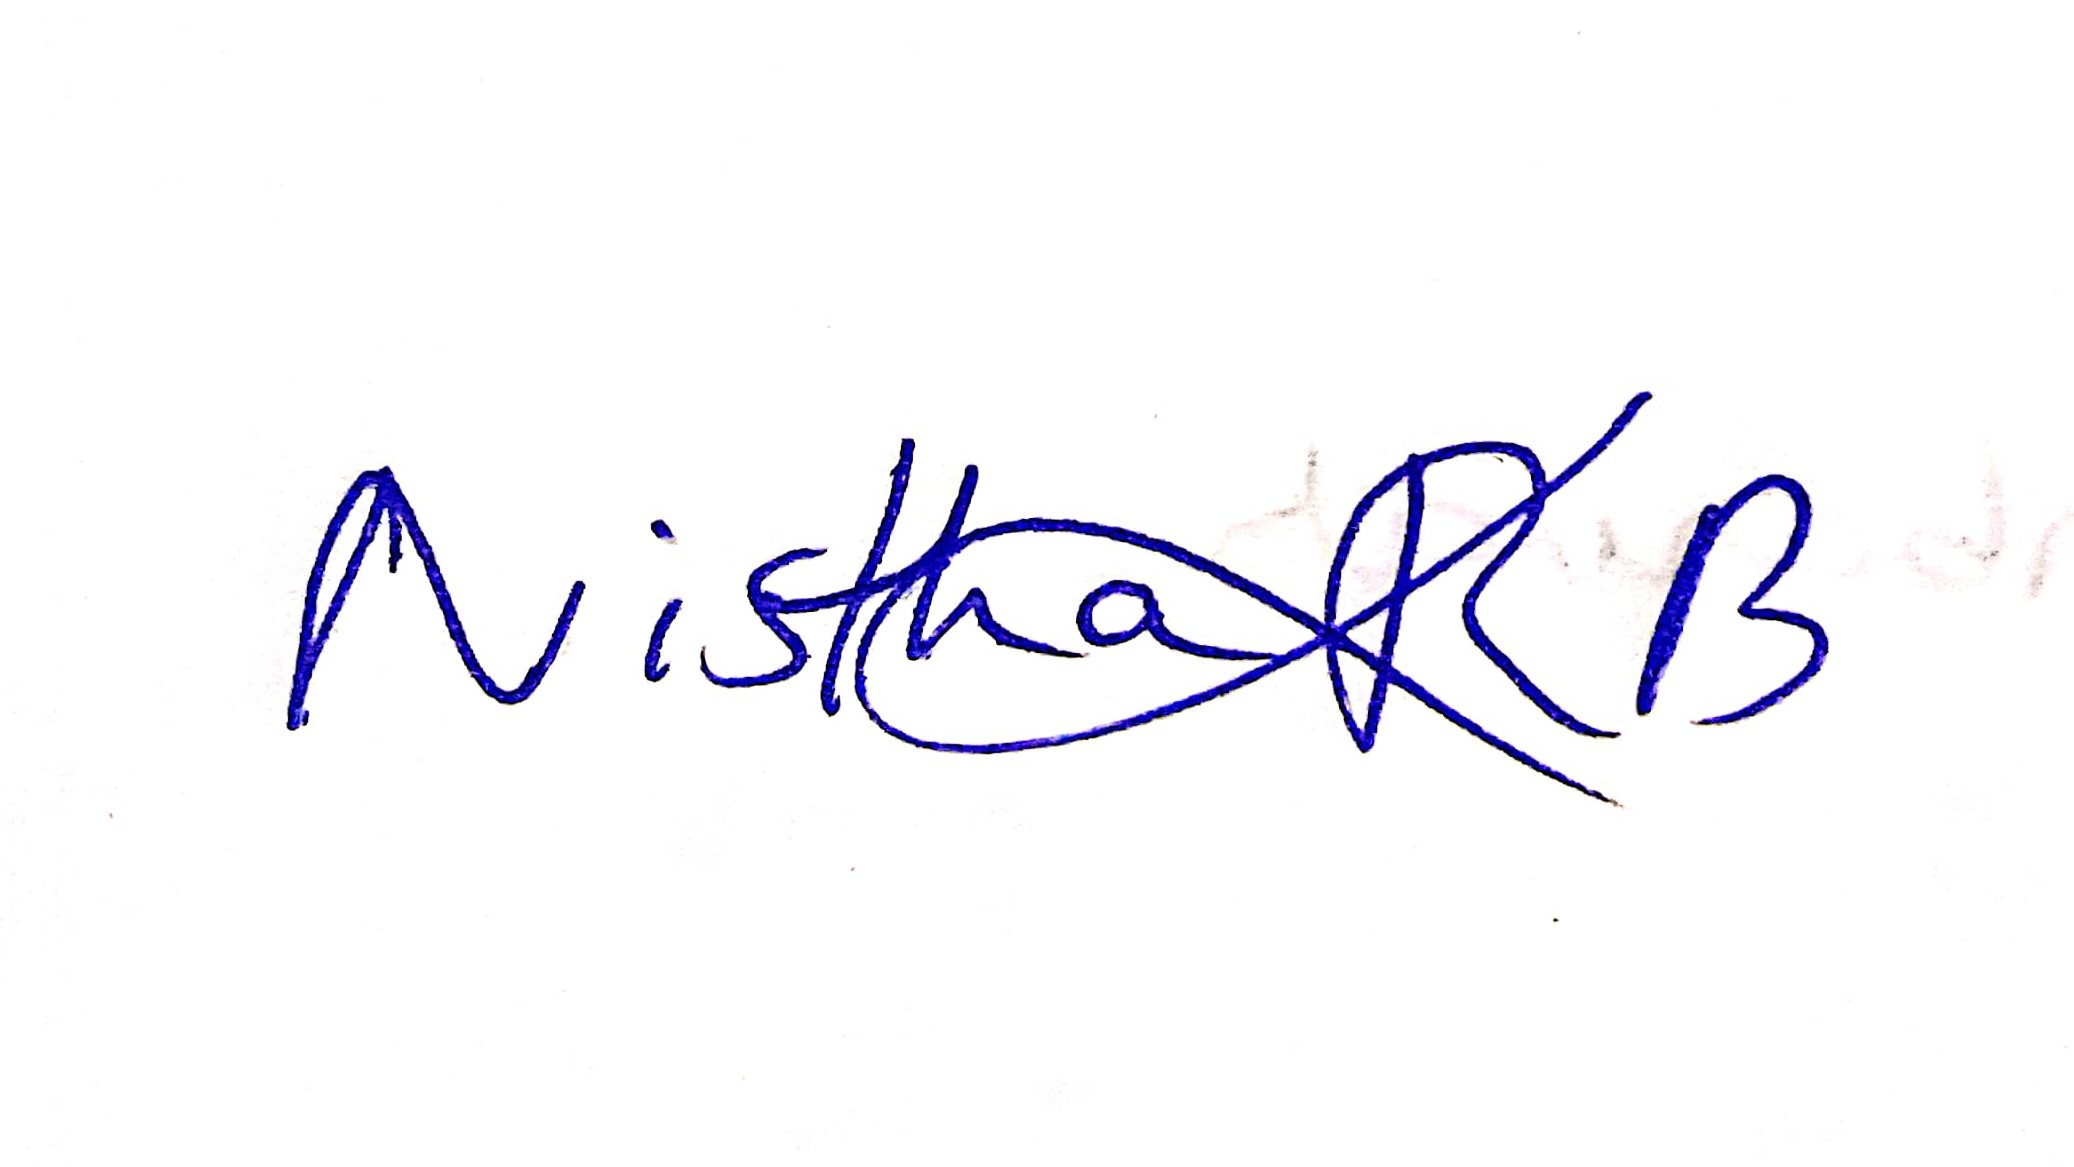 Nistha KB